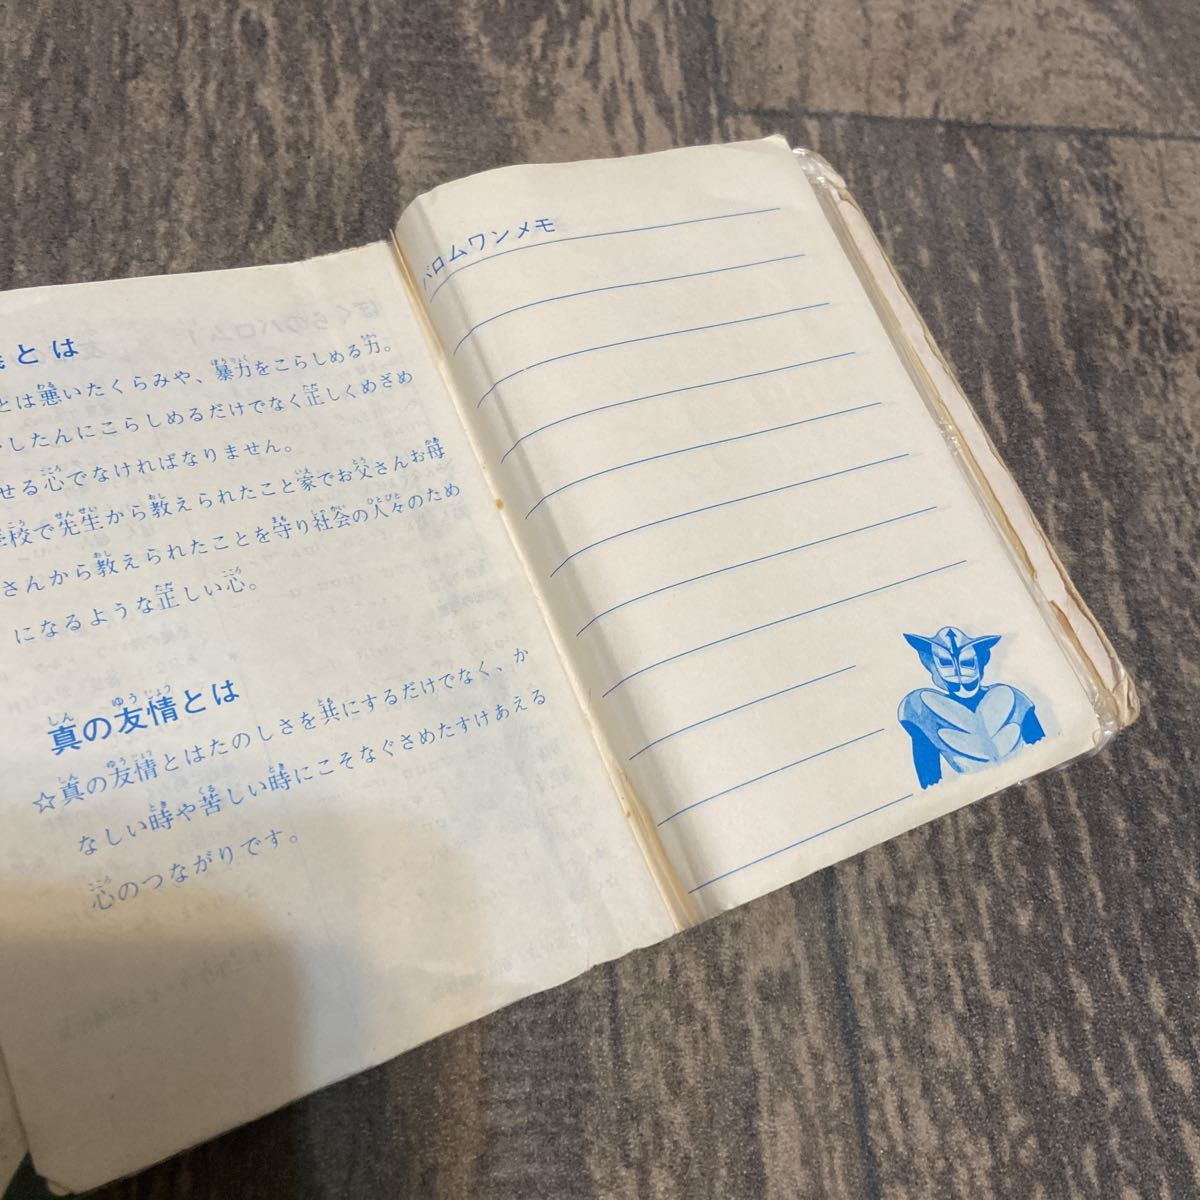 とは
とは悪いたくらみや、暴力をこらしめる力。
したんにこらしめるだけでなく正しくめざめ
せる心でなければなりません。
校で先生から教えられたこと家でお父さんお母
さんから教えられたことを守り社会の人々のため
になるような正しい心。
真の友情とは
☆真の友情とはたのしさを共にするだけでなく、か
なしい時や苦しい時にこそなぐさめたすけあえる
心のつながりです。
バロムワンメモ